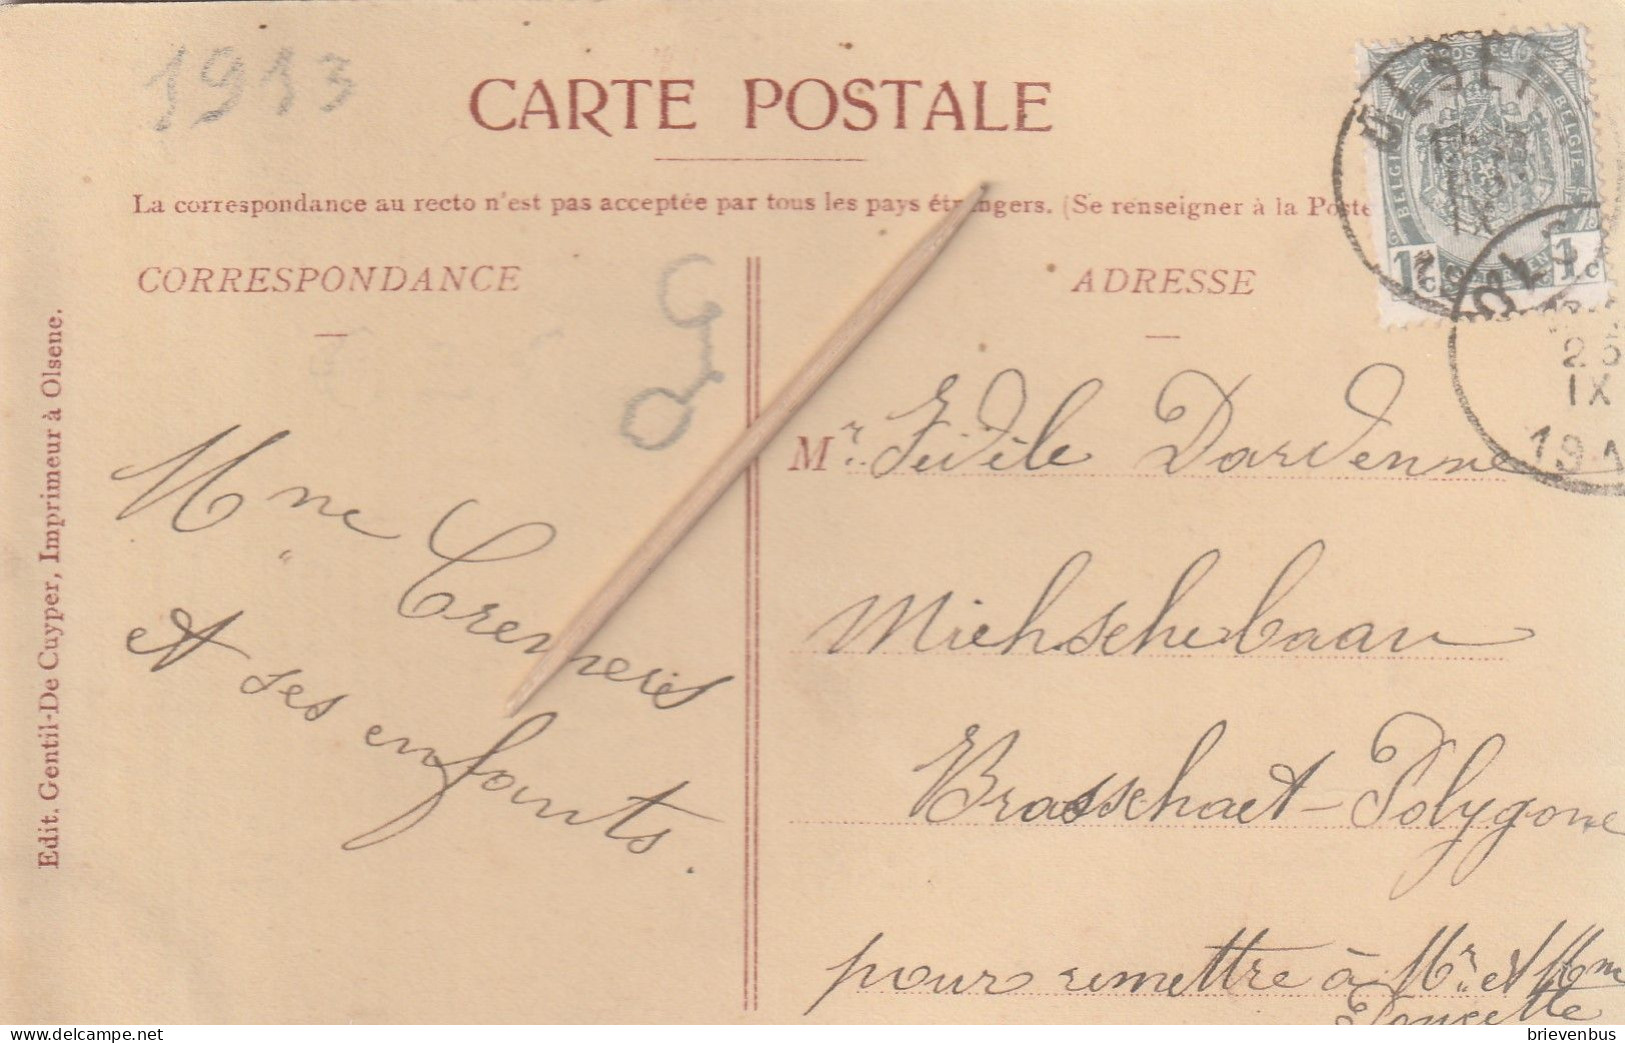 1913
CARTE POSTALE
La correspondance au recto n'est pas acceptée par tous les pays étrangers. (Se renseigner à la Poste
CORRESPONDANCE
ADRESSE
Edit. Gentil-De Cuyper, Imprimeur à Olsene.
BELGIE
BELGIE
1c
1c
OLSE
IX
IX
Mme
et ses enfants.
Mr. Fidèle Dardenne
Brasschaet-Polygone
pour remettre à Mr. et Mme
brievenbus